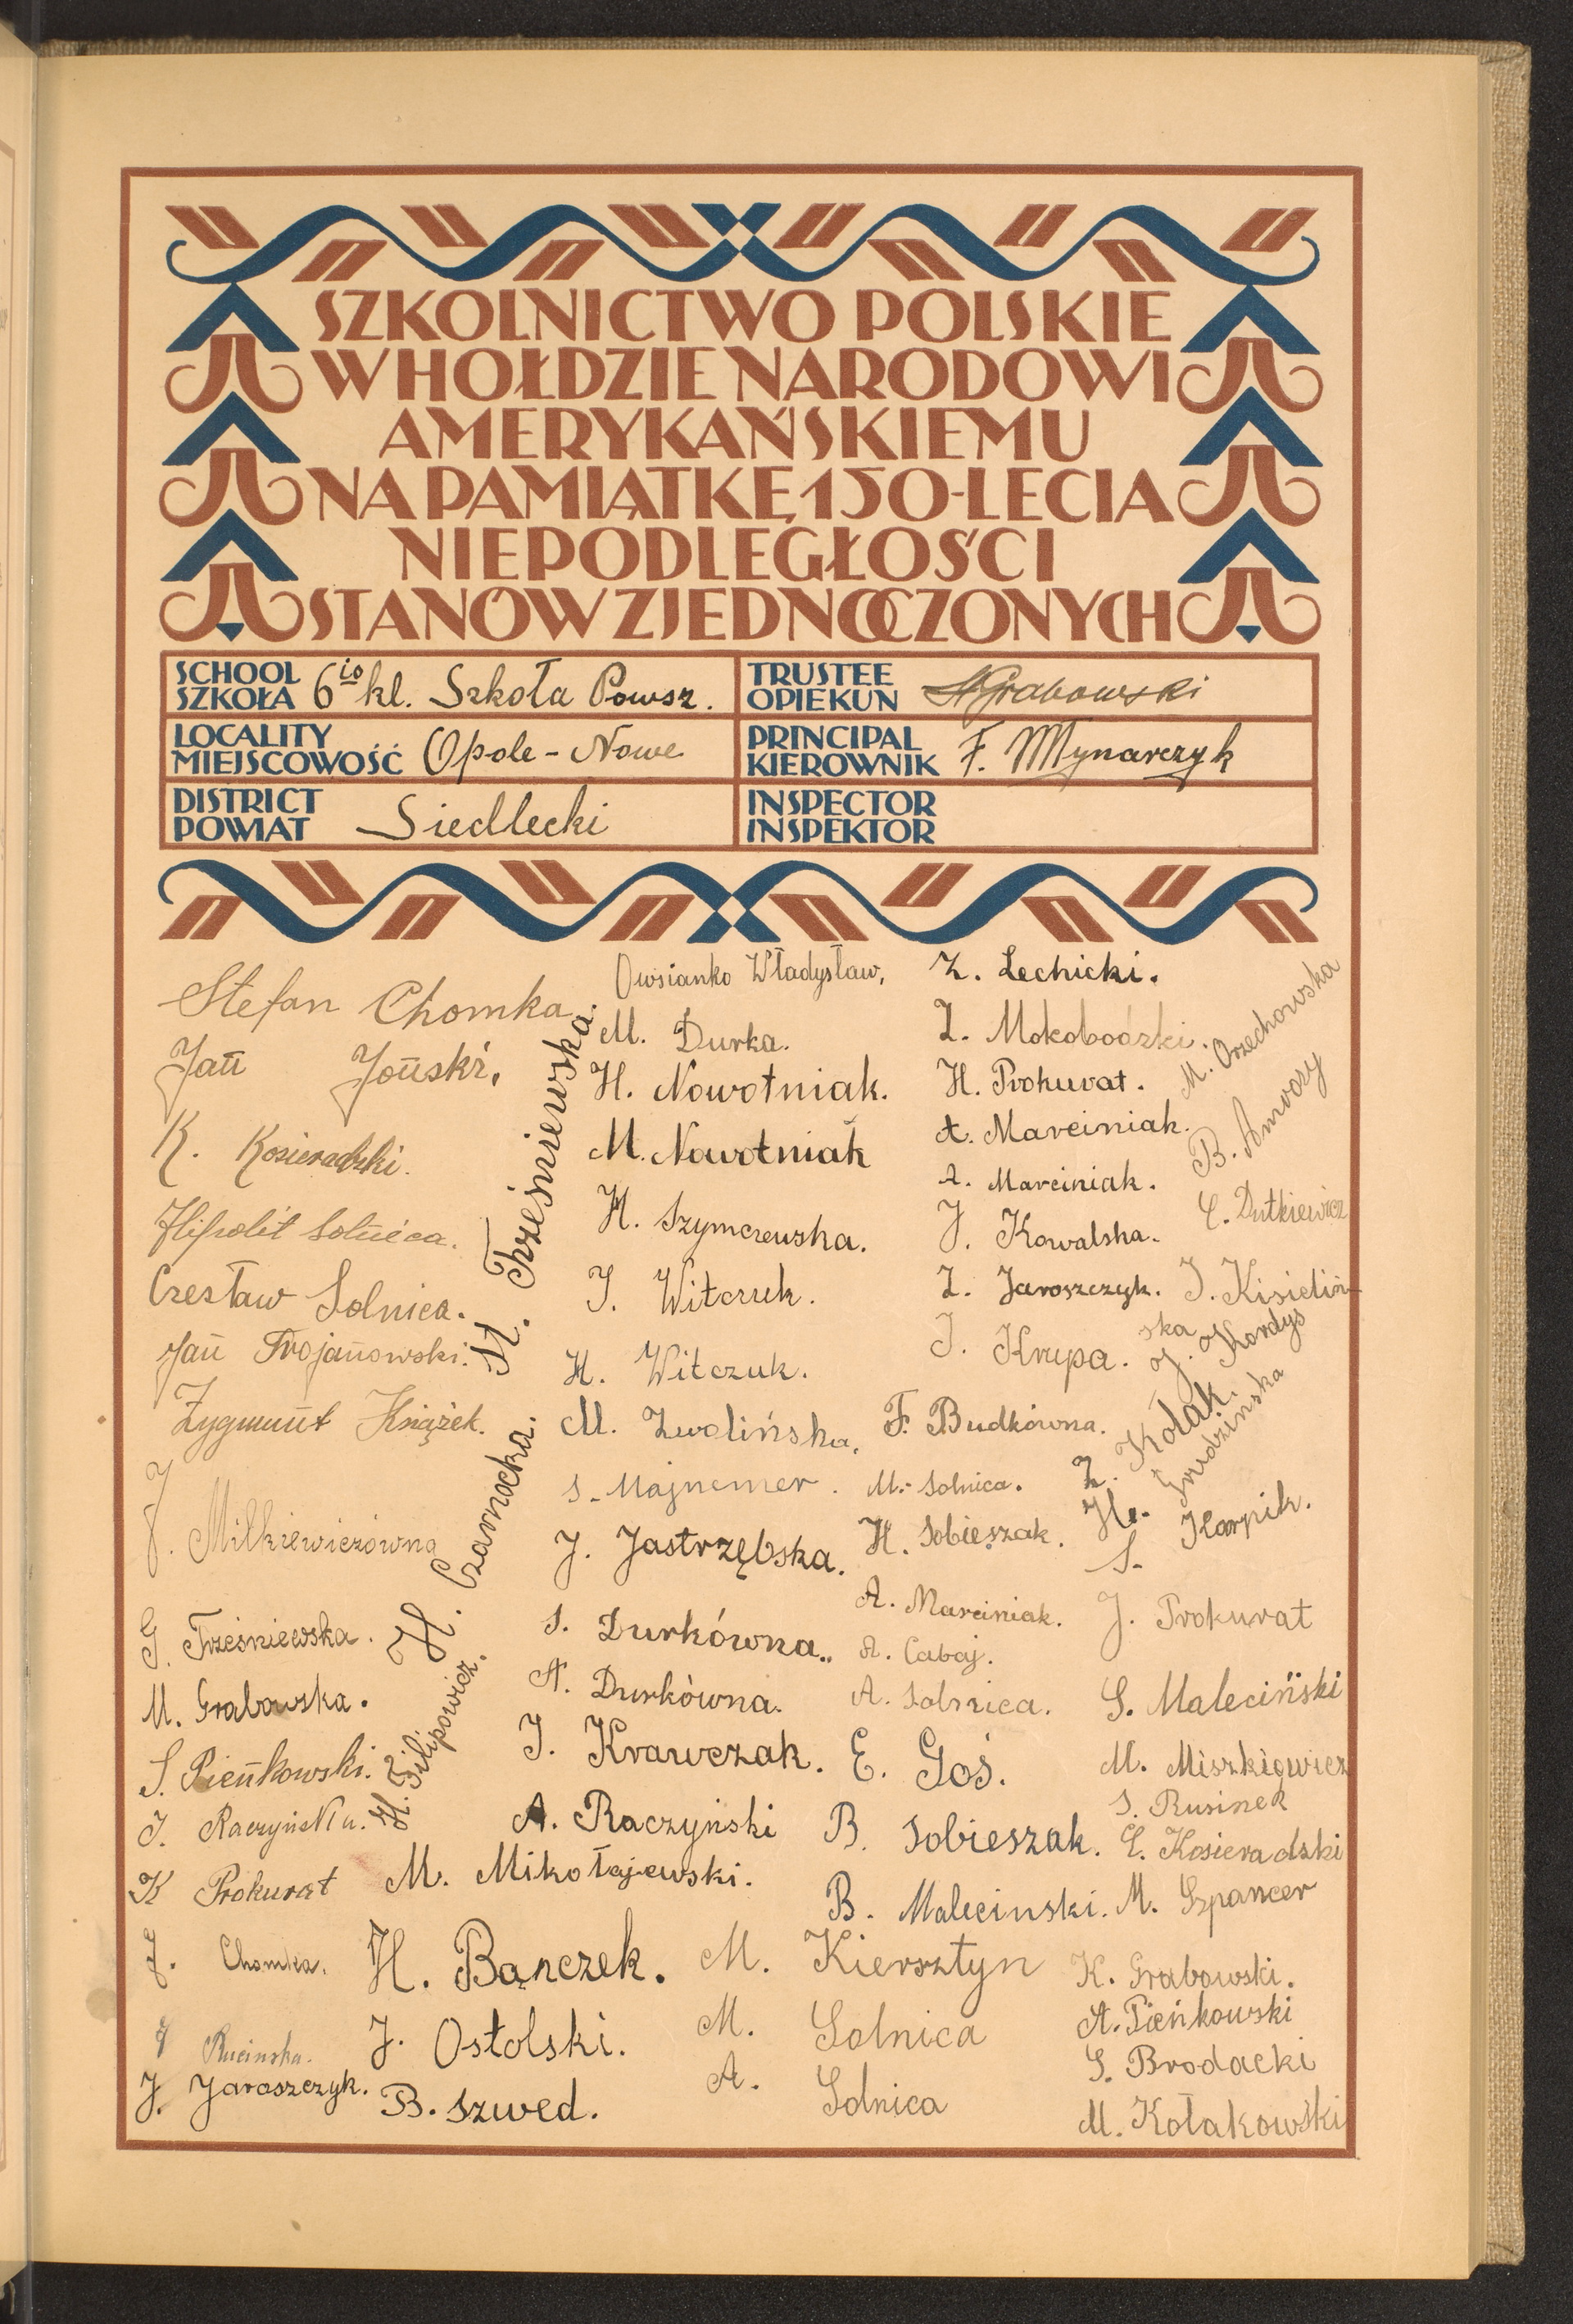 SZKOLNICTWO POLSKIE
W HOŁDZIE NARODOWI
AMERYKAŃSKIEMU
NA PAMIĄTKĘ 150-LECIA
NIEPODLEGŁOŚCI
STANÓW ZJEDNOCZONYCH
SCHOOL
SZKOŁA 6io kl. Szkoła Powsz.
TRUSTEE
OPIEKUN Grabowski
LOCALITY
MIEJSCOWOŚĆ Opole-Nowe
PRINCIPAL
KIEROWNIK F. Młynarczyk
DISTRICT
POWIAT Siedlecki
INSPECTOR
INSPEKTOR
Stefan Chomka.
Jan Joński,
K. Kosieradzki.
Hipolit Solnica.
Czesław Solnica.
Jan Trojanowski.
Zygmunt Książek.
J. Milkiewiczówna
G. Trześniewska.
M. Grabowska.
S. Pieńkowski.
K Prokurat
J. Chomka.
Rucinska.
J. Jaroszczyk.
H. Trześniewska.
H. Czarnocka.
H. Filipowicz.
Owsianko Władysław,
M. Durka.
H. Nowotniak.
M. Nowotniak
H. Szymczewska.
J. Witczuk.
H. Witczuk.
M. Zwolińska,
S. Majnemer.
J. Jastrzębska.
S. Durkówna.
A. Durkówna.
J. Krawczak.
A. Raczyński
M. Mikołajewski.
H. Bączek.
J. Ostolski.
B. Szwed.
Z. Lechicki.
Z. Mokobodzki.
H. Prokurat.
A. Marciniak.
A. Marciniak.
J. Kowalska.
Z. Jaroszczyk.
J. Krupa.
F. Budkówna.
M. Solnica.
H. Sobieszak.
A. Marciniak.
A. Cabaj.
A. Solnica.
E. Goś.
B. Sobieszak.
B. Malecinski.
M. Kiersztyn
M. Solnica
A. Solnica
M. Orzechowska
B. Amrozy
C. Dutkiewicz
J. Kisieliń-
ska
J. Kordys
Z. Kołak.
He. Grudzińska
S. Karpik.
J. Prokurat
S. Maleciński
M. Miszkiewicz
S. Rusinek
E. Kosieradzki
M. Szpancer
K. Grabowski.
A. Pieńkowski
S. Brodacki
M. Kołakowski